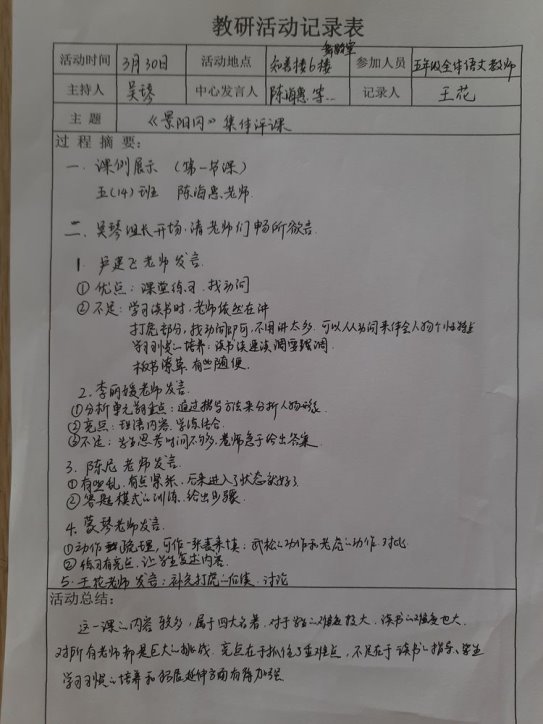 教研活动记录表
活动时间 3月30日 活动地点 知善楼6楼 会议室 参加人员 五年级全体语文教师
主持人 吴琴 中心发言人 陈海惠等 记录人 王花
主 题 《景阳冈》集体评课
过 程 摘 要:
一. 课例展示 (第一节课)
五(14)班 陈海惠老师
二. 吴琴组长开场,请老师们畅所欲言.
1. 尹建飞老师发言.
① 优点: 课堂练习,找动词
② 不足: 学习读书时,老师依然在讲
打虎部分,找动词即可,不用讲太多,可以从动词来体会人物个性特点
学习习惯的培养: 读书该速读调要强调.
板书潦草,有些随便.
2. 李丽媛老师发言.
①分析单元的重点: 通过指导方法来分析人物形象.
②亮点: 理清内容,学练结合
③不足: 学生思考时间不够多,老师急于给出答案.
3. 陈尼老师发言.
① 有些乱,有点紧张,后来进入了状态就好了
② 答题模式的训练,给出步骤.
4. 蒙琴老师发言.
①动作 梳理,可作一张表来填: 武松的动作和老虎的动作,对比.
② 练习有亮点,让学生复述内容.
5. 王花老师发言: 补充打虎的后续,讨论
活动总结:
这一课的内容较多,属于四大名著,对于学生的难度较大,读书的难度也大.
对所有老师都是巨大的挑战,亮点在于抓住了重难点,不足在于读书的指导、学生
学习习惯的培养和拓展延伸方面有待加强.